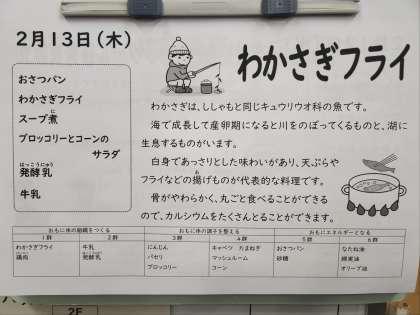 2月13日(木)
わかさぎフライ
おさつパン
わかさぎフライ
スープ煮
ブロッコリーとコーンの
サラダ
はっこうにゅう
発酵乳
牛乳
わかさぎは、ししゃもと同じキュウリウオ科の魚です。
海で成長して産卵期になると川をのぼってくるものと、湖に
生息するものがいます。
白身であっさりとした味わいがあり、天ぷらや
フライなどの揚げものが代表的な料理です。
骨がやわらかく、丸ごと食べることができる
ので、カルシウムをたくさんとることができます。
おもに体の組織をつくる おもに体の調子を整える おもにエネルギーとなる
1群 2群 3群 4群 5群 6群
わかさぎフライ 牛乳 にんじん キャベツ たまねぎ おさつパン なたね油
鶏肉 発酵乳 パセリ マッシュルーム 砂糖 綿実油
ブロッコリー コーン オリーブ油
2F